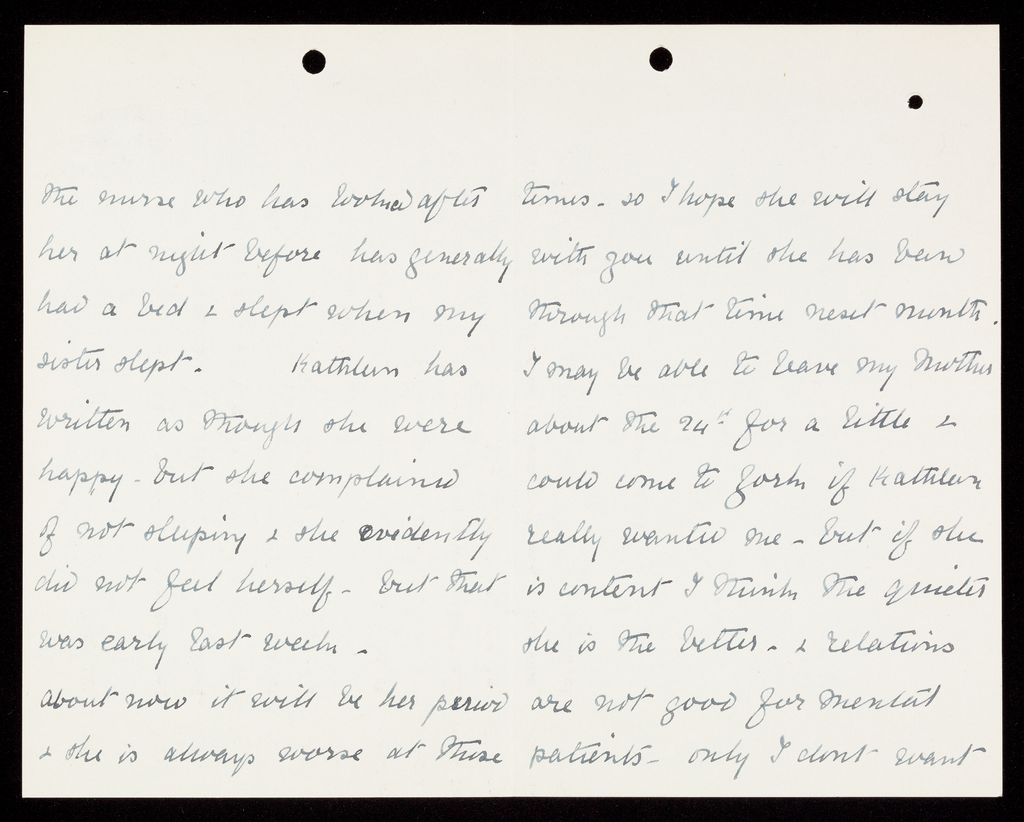 the nurse who has looked after
her at night before has generally
had a bed & slept when my
sister slept. Kathleen has
written as though she were
happy - but she complained
of not sleeping & she evidently
did not feel herself - but that
was early last week -
about now it will be her period
& she is always worse at those
times - so I hope she will stay
with you until she has been
through that time next month.
I may be able to leave my Mother
about the 24th for a little &
could come to York if Kathleen
really wanted me - but if she
is content I think the quieter
she is the better - & relations
are not good for mental
patients - only I dont want